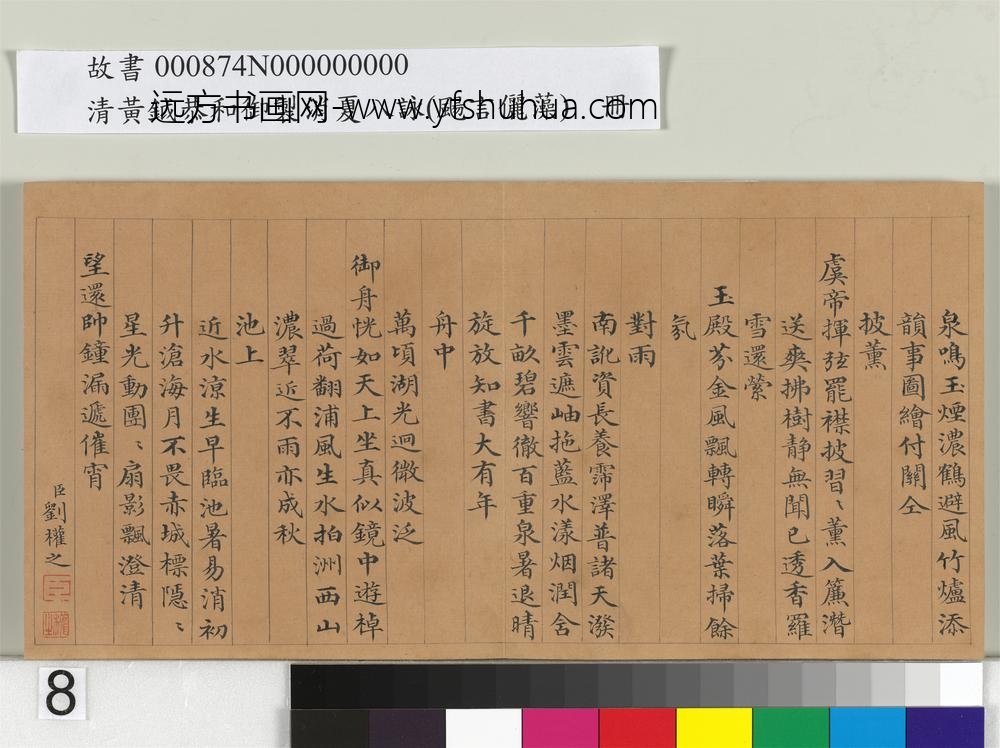 故書 000874N000000000
清黃鉞恭和御製消夏八詠(颺言儷藻) 冊
远方书画网-www.yfshuhua.com
泉鳴玉煙濃鶴避風竹爐添
韻事圖繪付關仝
披薰
虞帝揮弦罷襟披習〻薰入簾潛
送爽拂樹靜無聞已透香羅
雪還縈
玉殿芬金風飄轉瞬落葉掃餘
氛
對雨
南訛資長養霈澤普諸天潑
墨雲遮岫拖藍水漾烟潤含
千畝碧響徹百重泉暑退晴
旋放知書大有年
舟中
萬頃湖光迥微波泛
御舟恍如天上坐真似鏡中遊棹
過荷翻浦風生水拍洲西山
濃翠近不雨亦成秋
池上
近水涼生早臨池暑易消初
升滄海月不畏赤城標隱〻
星光動團〻扇影飄澄清
望還帥鐘漏遞催宵
臣劉權之
8